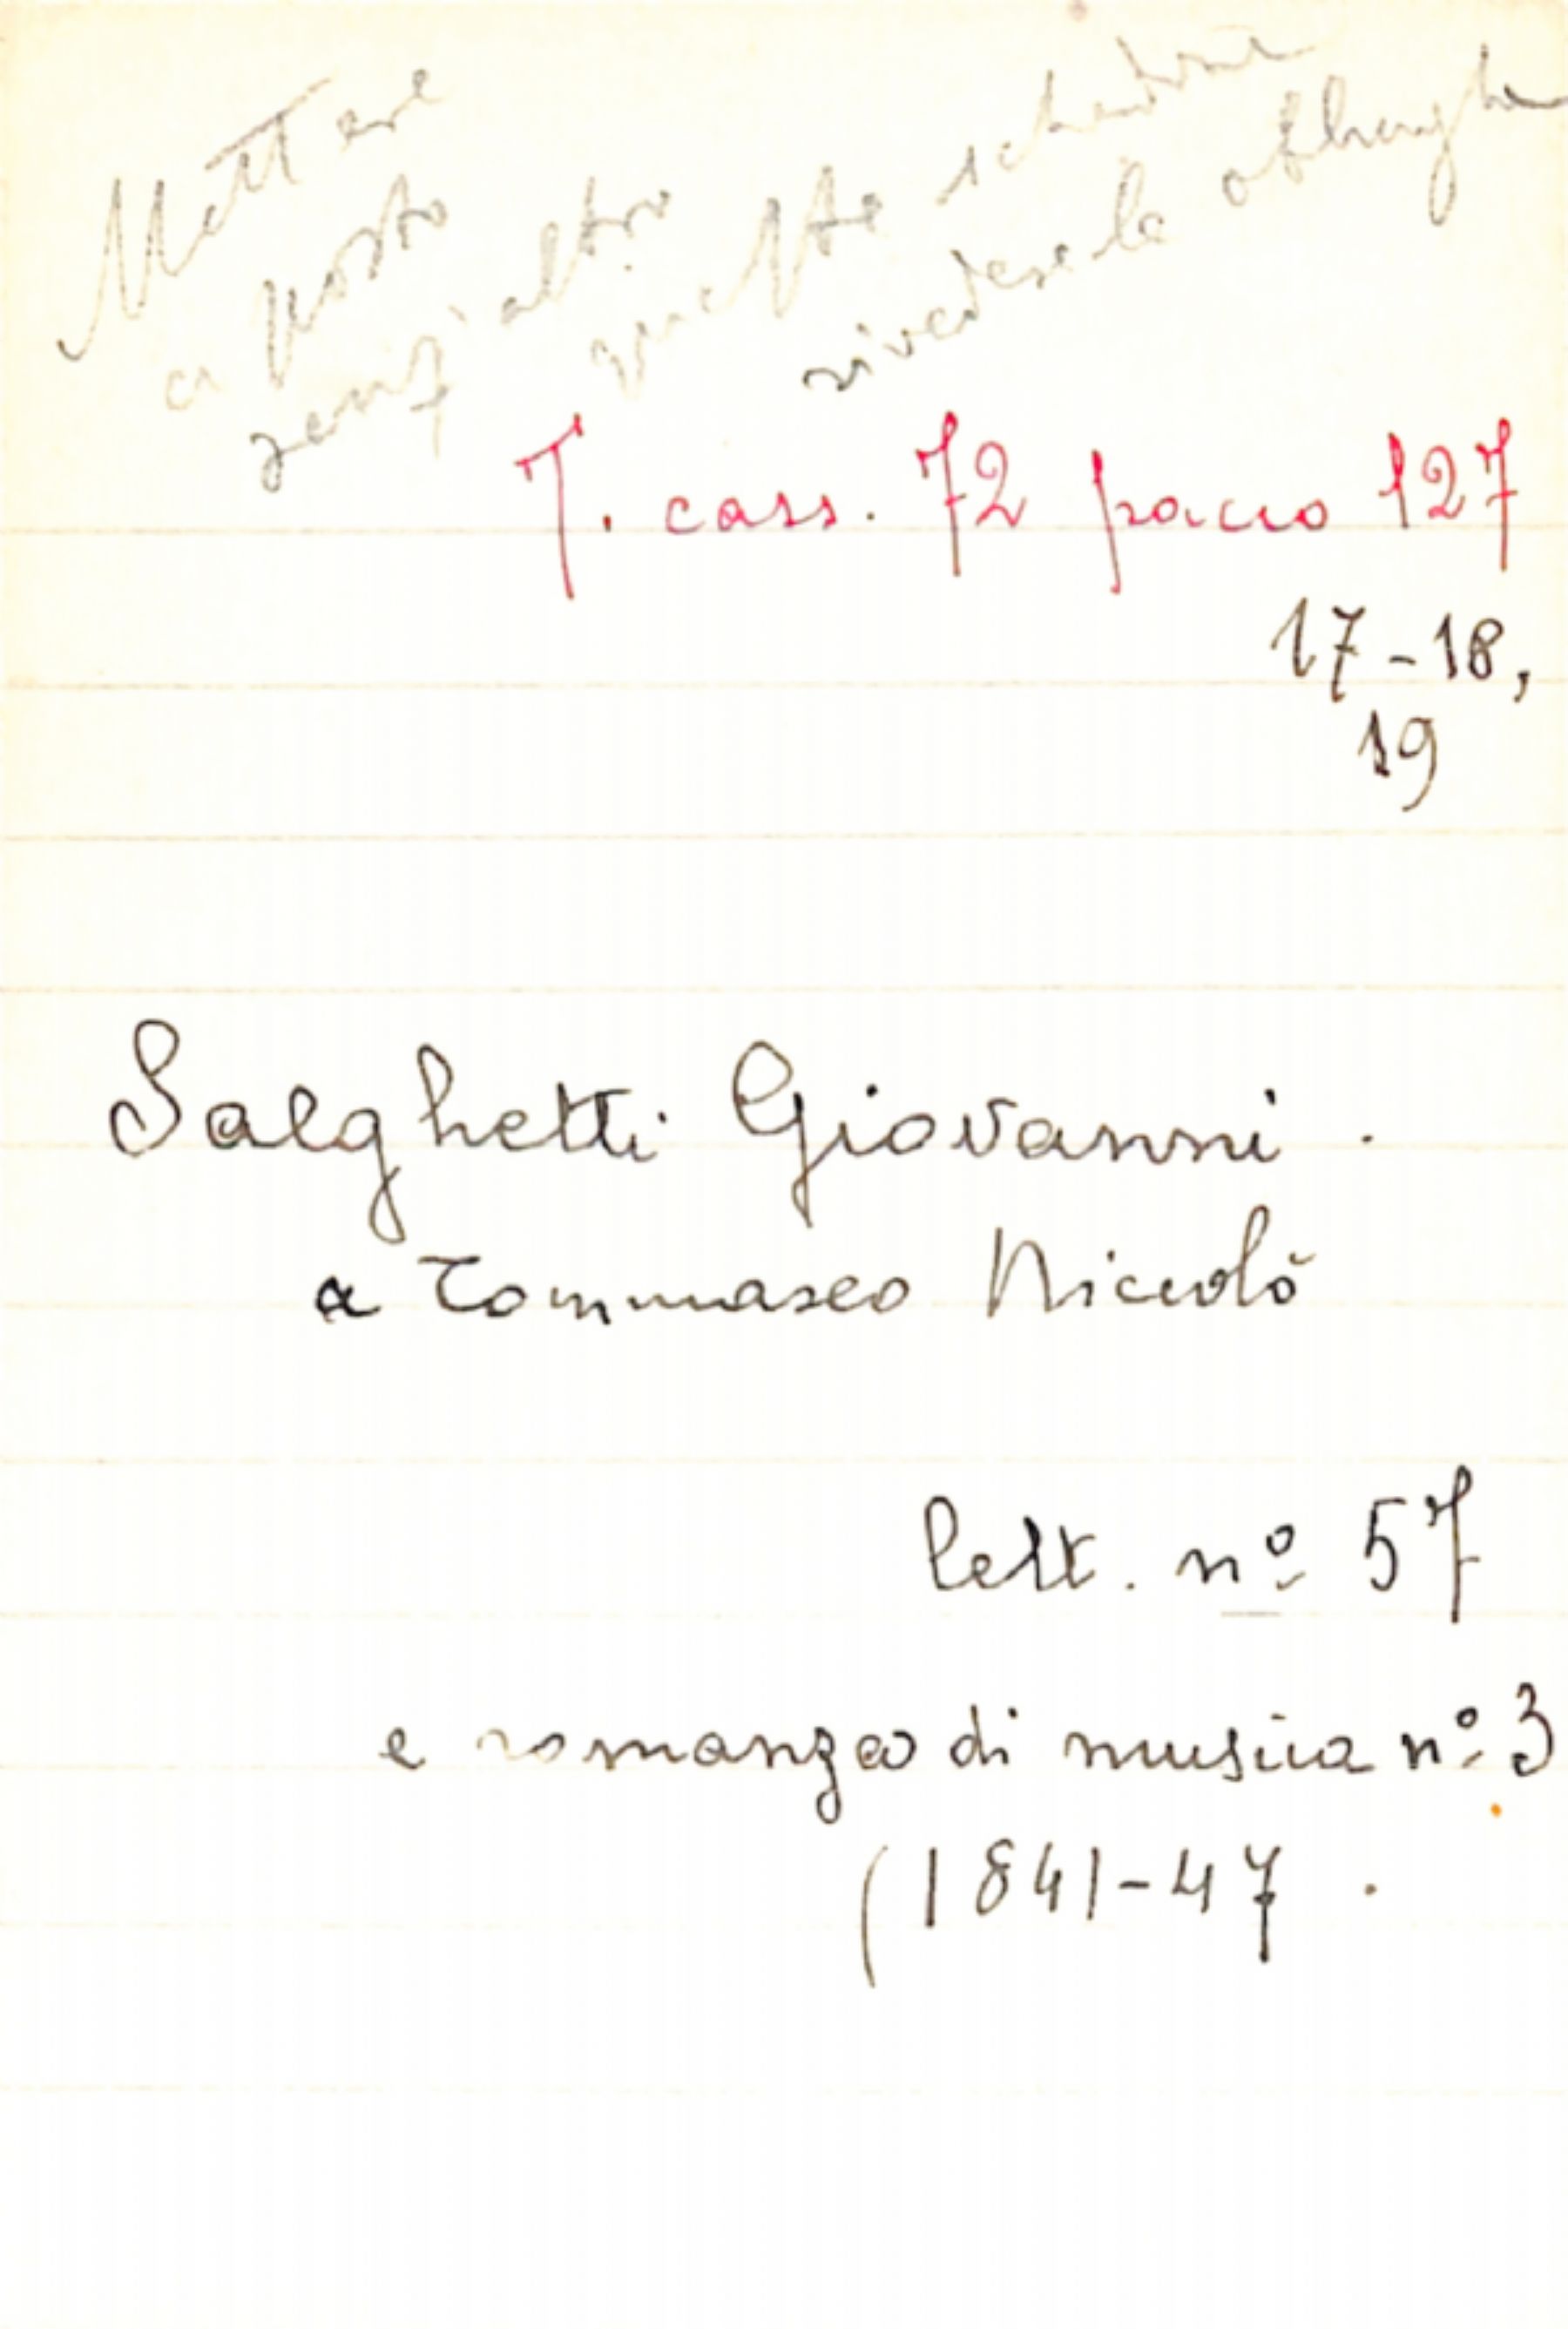 Mettere
a posto
senz'altro
queste schedine
rivederle
T. cass. 72 pacco 127
17-18,
19
Salghetti Giovanni.
a Tommaseo Niccolò
lett. nº 57
e romanze di musica nº 3
(1841-47.